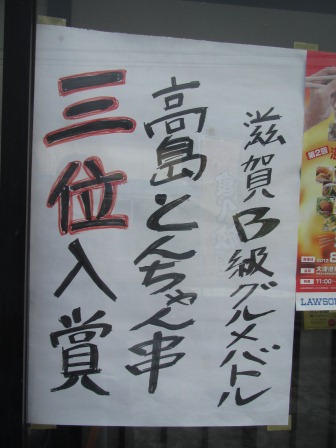 滋賀B級グルメバトル
高島とんちゃん串
三位入賞
第2回
11:00
LAWSON